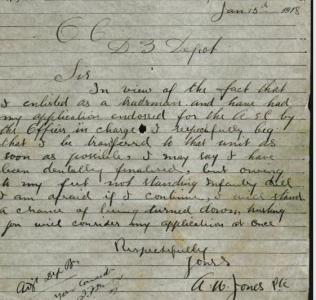 Jan 15th 1918
O C
D 3 Depot
Sir
In view of the fact that
I enlisted as a tradesman and have had
my application endorsed for the A.S.C by
the Officer in charge I respectfully beg
that I be transferred to that unit as
soon as possible, I may say I have
been dentally finalised, but owing
to my feet not standing Infantry drill
I am afraid if I continue, I will stand
a chance of being turned down, trusting
you will consider my application at once
Respectfully
Yours
A W Jones Pte